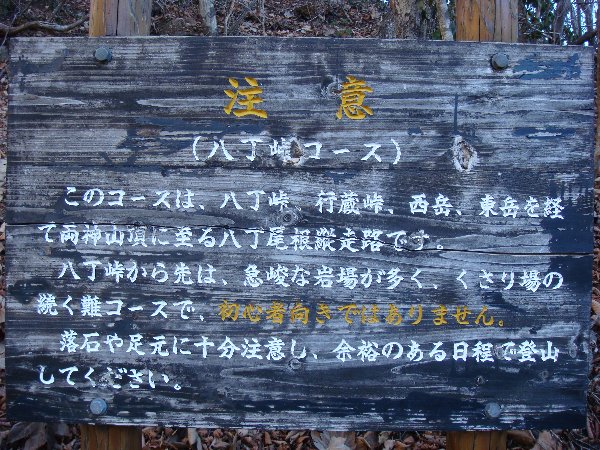 注意
（八丁峠コース）
このコースは、八丁峠、行蔵峠、西岳、東岳を経
て両神山頂に至る八丁尾根縦走路です。
八丁峠から先は、急峻な岩場が多く、くさり場の
続く難コースで、初心者向きではありません。
落石や足元に十分注意し、余裕のある日程で登山
してください。